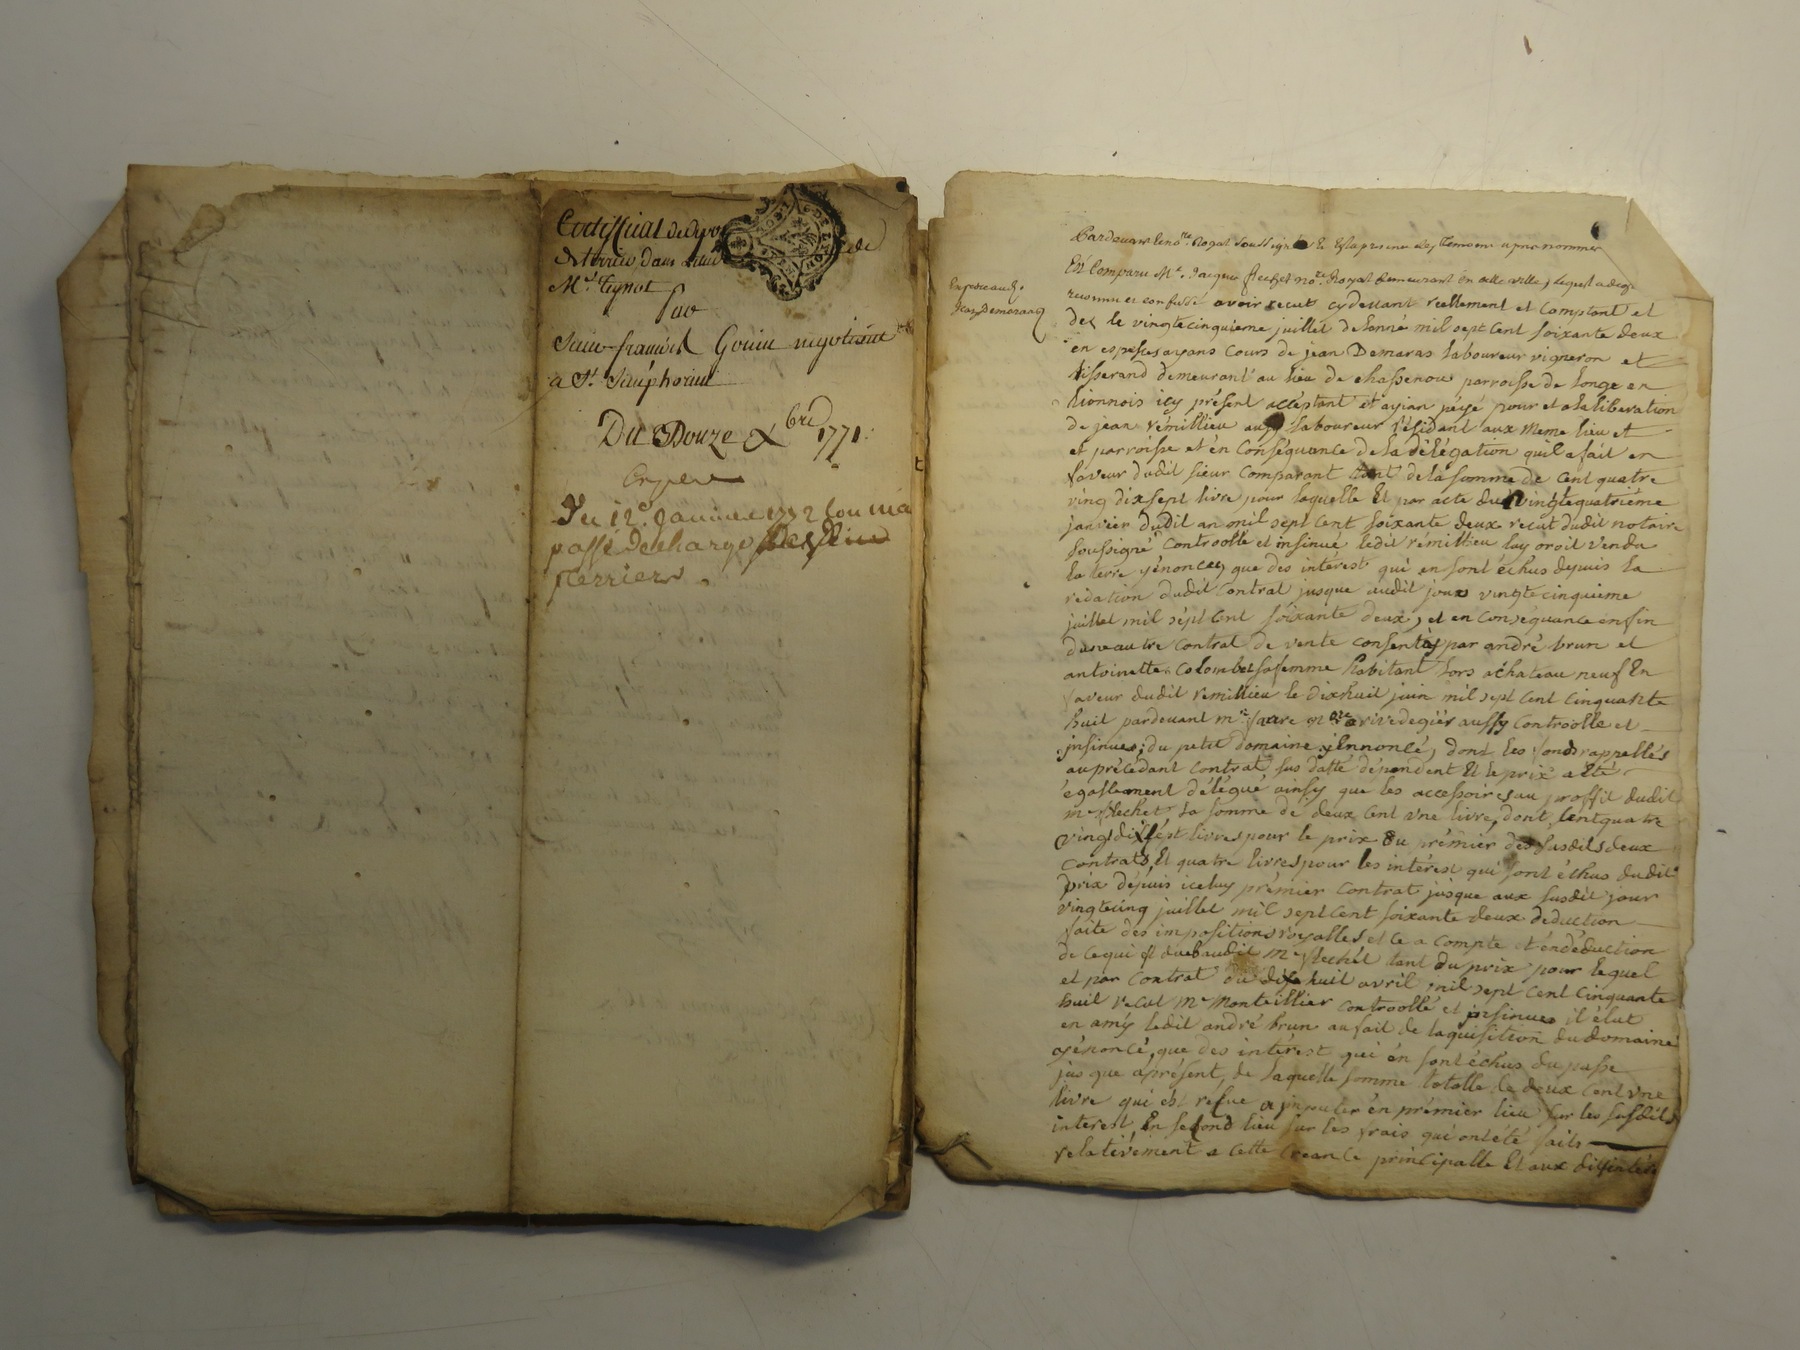 Certifficat de depo de
de terrier dans l'etude
M.e Tignot
par
Sieur françois Gouin negotiant
a S.t Simphorien
Du Douze Xbre 1771.
Du 12.e Janvier 1772 lon m'a
passé décharge
terriers.
Expedié au d.
Jean Demaras
Pardevant le no.re Royal soussigné et Es presences des temoins apres nommés
Est Comparu M.e Jacques flechet no.re Royal demeurant en cette ville, lequel a de gré
reconnu et confessé avoir recut cy devant reellement et Comptant et
dez le vingtecinquieme juillet de lanné mil sept Cent soixante deux
en espesses ayans Cours de jean Demaras laboureur vigneron et
tisserand demeurant au lieu de chassenou parroisse de Longe en
Lionnois icy présent acceptant et ayian péyé pour et a la liberation
de jean remillieu aussy laboureur résidant aux même lieu et
et parroisse et én Conséquance de la délégation quil a fait en
faveur dudit sieur Comparant tant dela somme de Cent quatre
ving dix sept livre pour laquelle Et par acte du vingtequatriéme
janvier dudit an mil sept Cent soixante deux recut dudit notaire
soussigné Controolle et insinué ledit rémillieu luy avoit vendu
la terre y énoncez que des intérest qui en sont échus depuis la
redation dudit Contrat jusque audit jour vingtecinquieme
juillet mil sépt Cent soixante deux, et en conséquance enfin
dun autre Contrat de vente consentis par andré brun et
antoinette Colombet sa femme habitant lors a chateau neuf En
faveur dudit remillieu le dixhuit juin mil sept Cent Cinquante
huit pardevant m.re faure n.re a rivedegiér aussy Controolle et
insinues; du petit domaine y Ennoncé, dont les fonds rappellés
au précédant Contrat sus datté dépendent Et le prix a Eté
égallement délégué ainsy que les accessoires au proffit dudit
m.e flechet La somme de deux Cent une livre, dont Cent quatre
vings dix sépt livres pour le prix du prémier des susdits deux
Contrats, Et quatre livres pour les intérest qui sont échus dudit
prix dépuis iceluy prémier Contrat jusque aux susdit jour
vingtecinq juillet mil sept Cent soixante deux deduction
faite des impositions royalles et ce a compte et én déduction
de ce qui est dueb audit m.e flechet tant du prix pour lequel
et par Contrat du dix huit avril mil sept Cent Cinquante
huit recut M.e Monteillier Controollé et insinues il élut
en amÿ ledit andré brun au fait de laquisition du domaine
y énoncé, que des intérest qui én sont échus du passe
jusque a présent, de laquelle somme totalle de deux Cent une
livre qui est reçue a jmputer én prémier lieu sur les susdits
interest, En second lieu sur les frais qui ont été faits
relativement a cette Creance principalle Et aux dit intérs